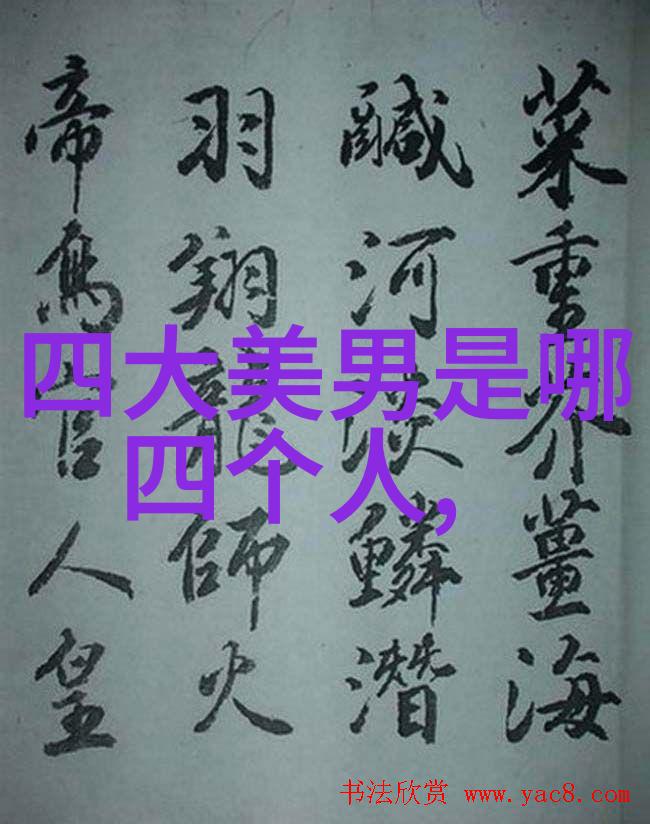 菜重芥薑海
鹹河淡鱗潛
羽翔龍師火
帝鳥官人皇
四大美男是哪
四个人,
书法欣赏 www.yac8.com